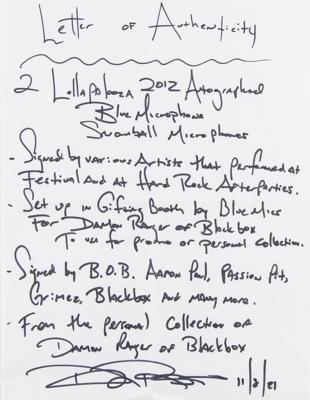 Letter of Authenticity
2 Lollapalooza 2012 Autographed
Blue Microphone
Snowball Microphones
- Signed by various Artists that performed at
Festival and at Hard Rock Afterparties.
- Set up in Gifting Booth by Blue Mics
For Damon Ranger of Blackbox
To use for promo or personal collection.
- Signed by B.O.B. Aaron Paul, Passion Pit,
Grimez, Blackbox and many more.
- From the personal collection of
Damon Ranger of Blackbox
11/8/21